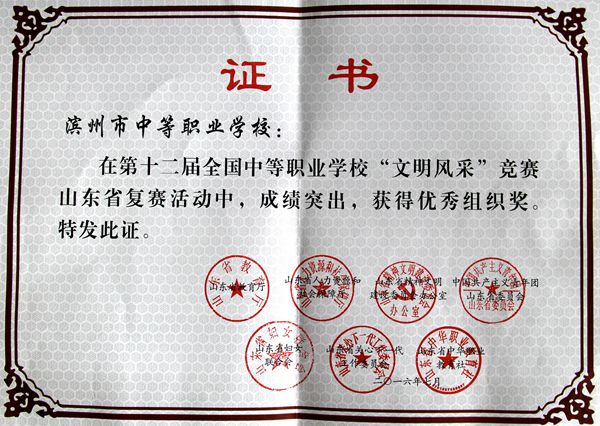 证书
滨州市中等职业学校：
在第十二届全国中等职业学校“文明风采”竞赛
山东省复赛活动中，成绩突出，获得优秀组织奖。
特发此证。
山东省教育厅
山东省人力资源和
社会保障厅
山东省精神文明
建设委员会办公室
中国共产主义青年团
山东省委员会
山东省妇女
联合会
山东省关心下一代
工作委员会
山东省中华职业
教育社
二〇一六年七月